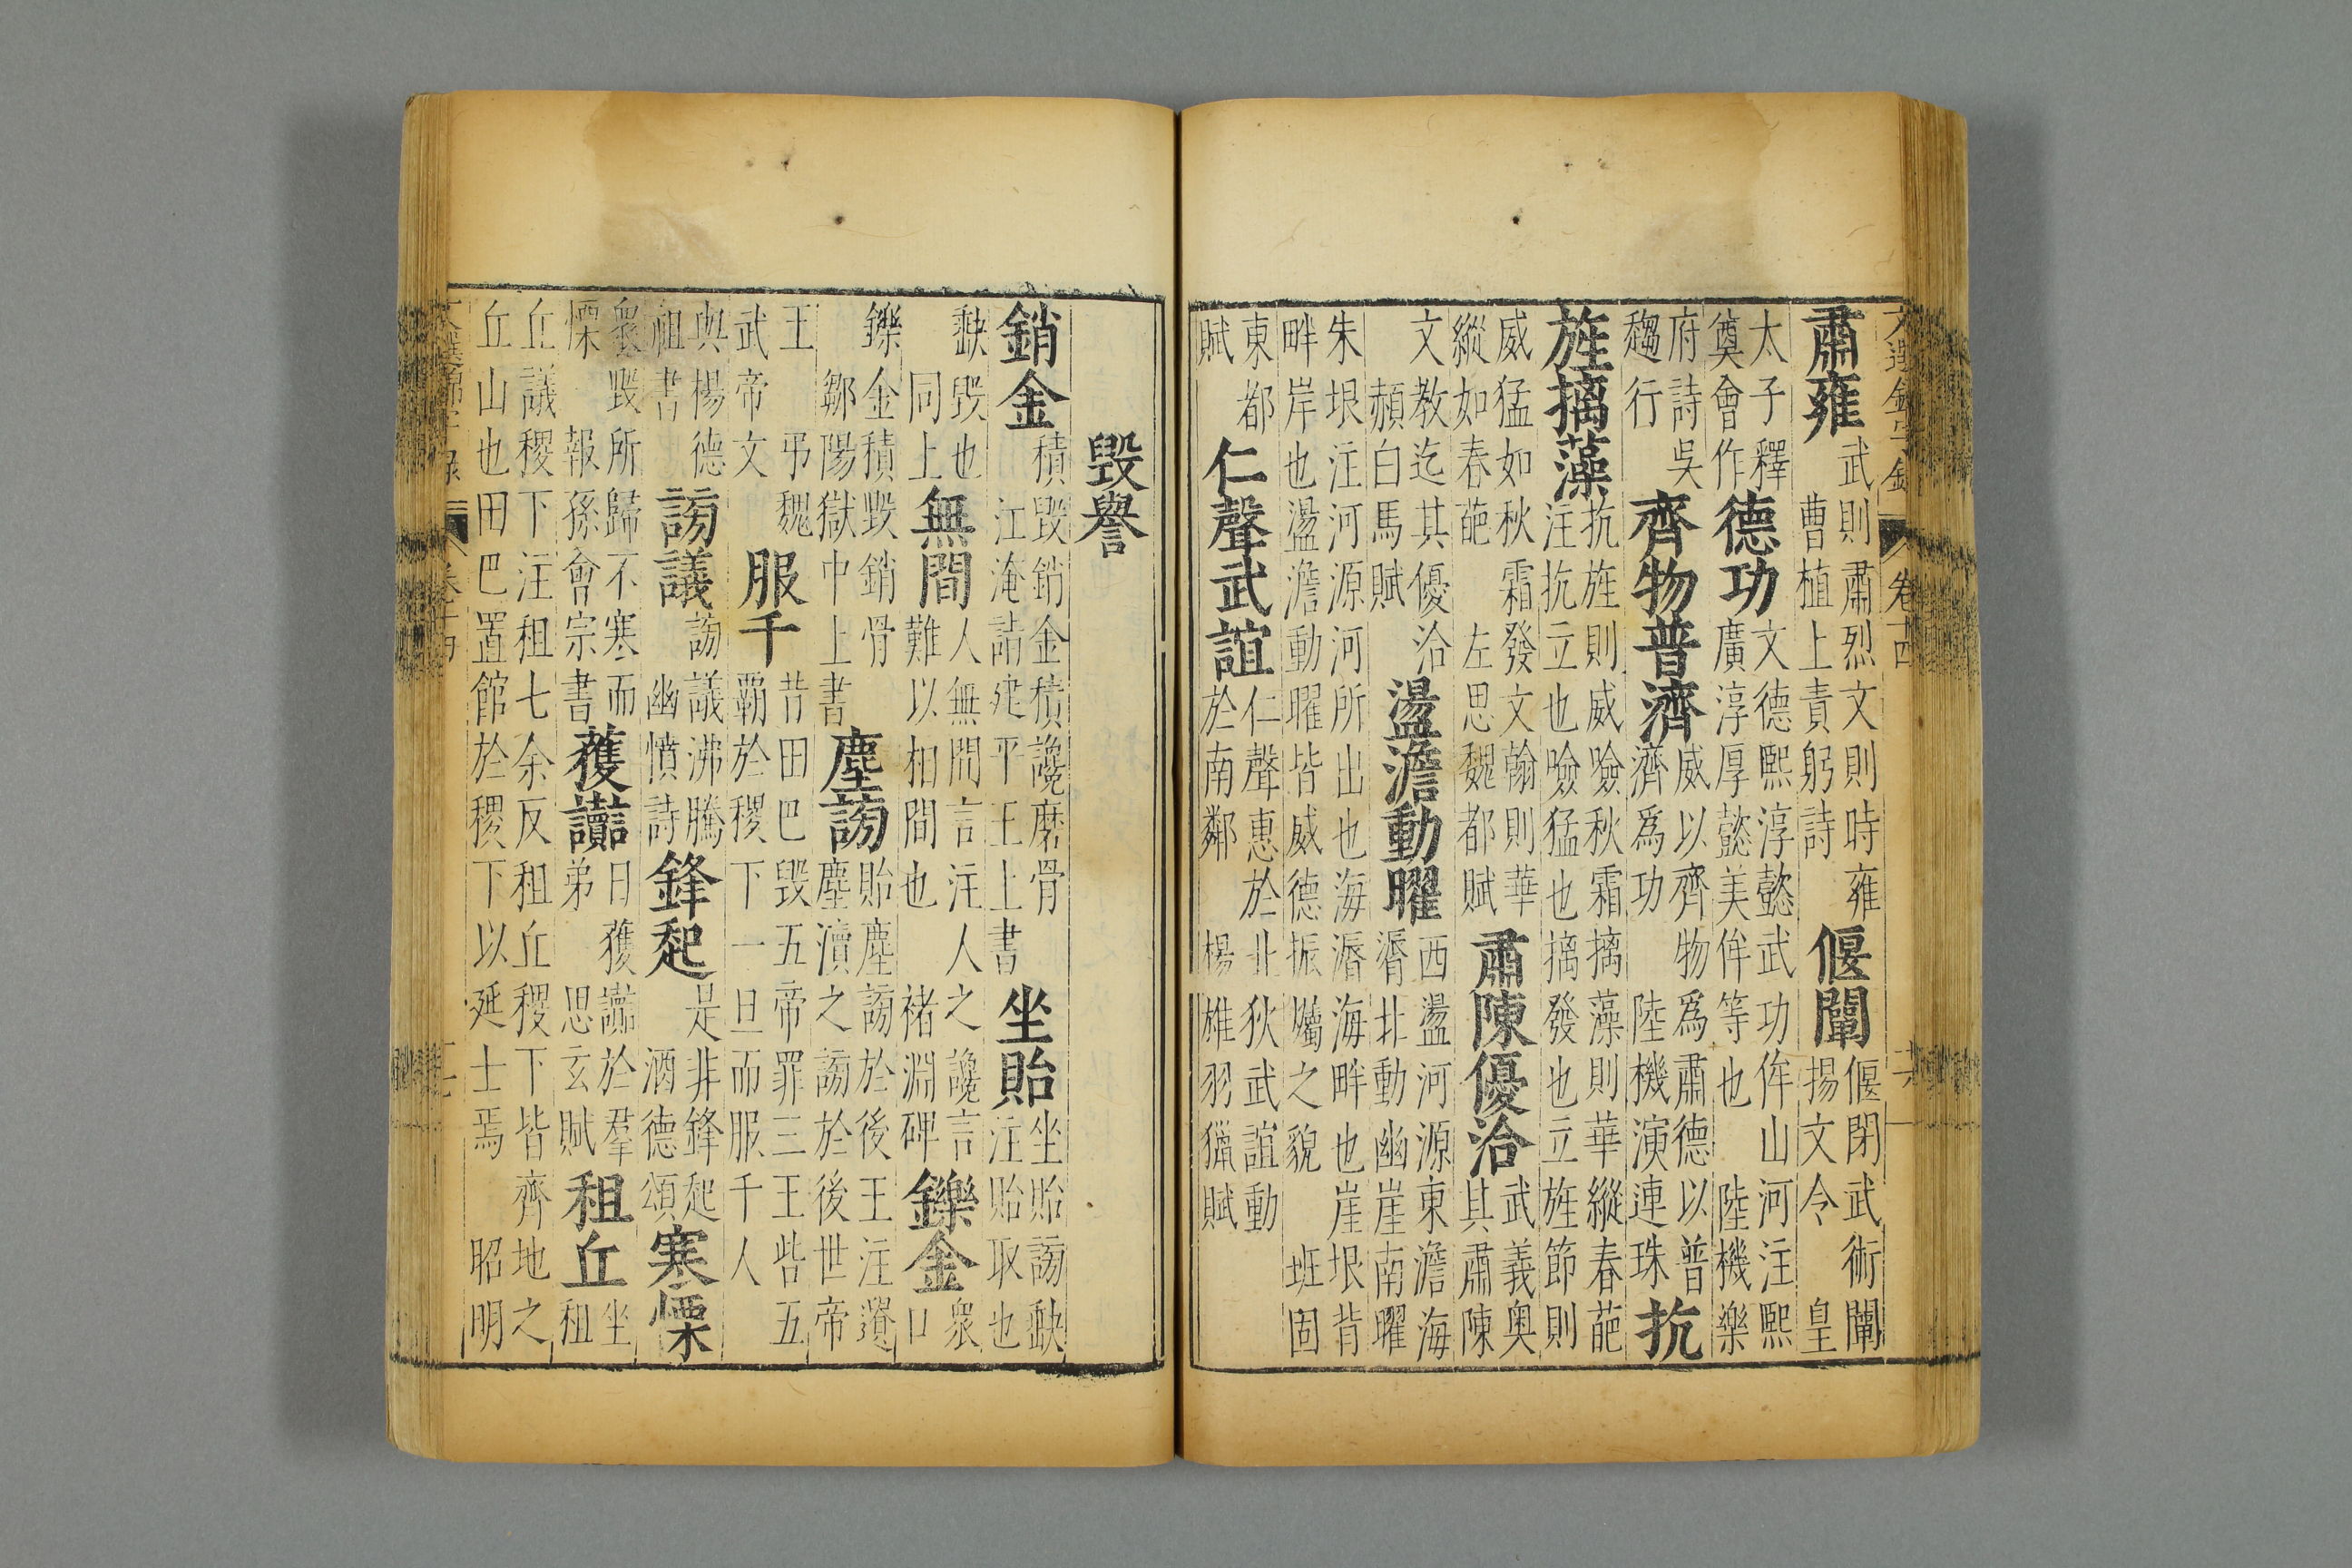 文選錦字錄 卷十四 十六
肅雍 武則肅烈文則時雍 曹植上責躬詩 偃闡 偃閉武術闡揚文令 皇
太子釋奠會作 德功 文德熙淳懿武功侔山河注熙廣淳厚懿美侔等也 陸機樂
府詩吳趨行 齊物普濟 威以齊物爲肅德以普濟爲功 陸機演連珠 抗
旌摛藻 抗旌則威噞秋霜摛藻則華縱春葩注抗立也噞猛也摛發也立旌節則
威猛如秋霜發文翰則華縱如春葩 左思魏都賦 肅陳優洽 武義奧其肅陳
文教迄其優洽 頳白馬賦 盪澹動曜 西盪河源東澹海漘北動幽崖南曜
朱垠注河源河所出也海漘海畔也崖垠皆畔岸也盪澹動曜皆威德振爥之貌 班固
東都賦 仁聲武誼 仁聲惠於北狄武誼動於南鄰 楊雄羽獵賦
毀譽
銷金 積毀銷金積讒磨骨 江淹詣建平王上書 坐貽 坐貽謗缺注貽取也
缺毀也 同上 無間 人無間言注人之讒言難以相間也 褚淵碑 鑠金 衆口
鑠金積毀銷骨 鄒陽獄中上書 塵謗 貽塵謗於後王注遺塵瀆之謗於後世帝
王 弔魏武帝文 服千 昔田巴毀五帝罪三王呰五覇於稷下一旦而服千人
與楊德祖書 謗議 謗議沸騰 幽憤詩 鋒起 是非鋒起 酒德頌 寒慄
衆毀所歸不寒而慄 報孫會宗書 獲讟 曰獲讟於羣弟 思玄賦 租丘 坐租
丘議稷下注租七余反租丘稷下皆齊地之丘山也田巴置館於稷下以延士焉 昭明